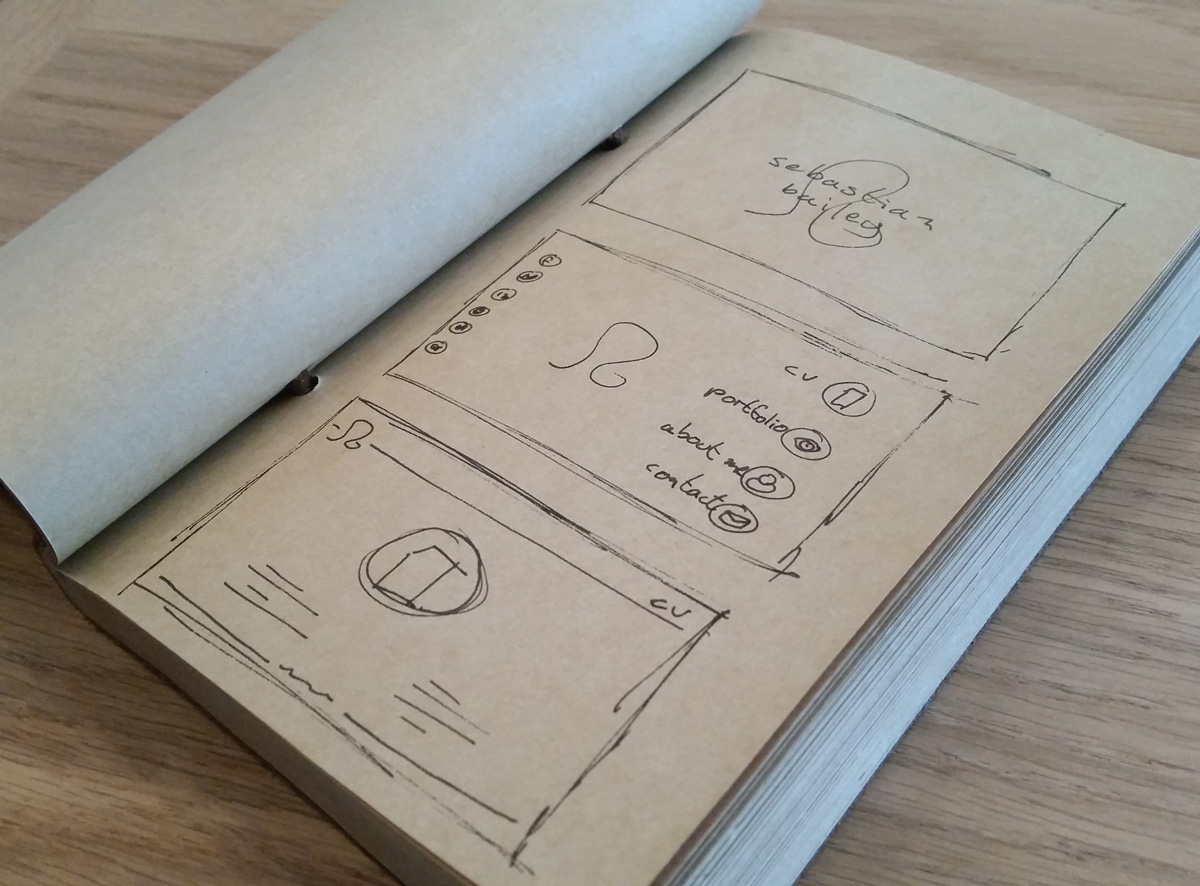 sebastian
bailey
cv
portfolio
about me
contact
cv